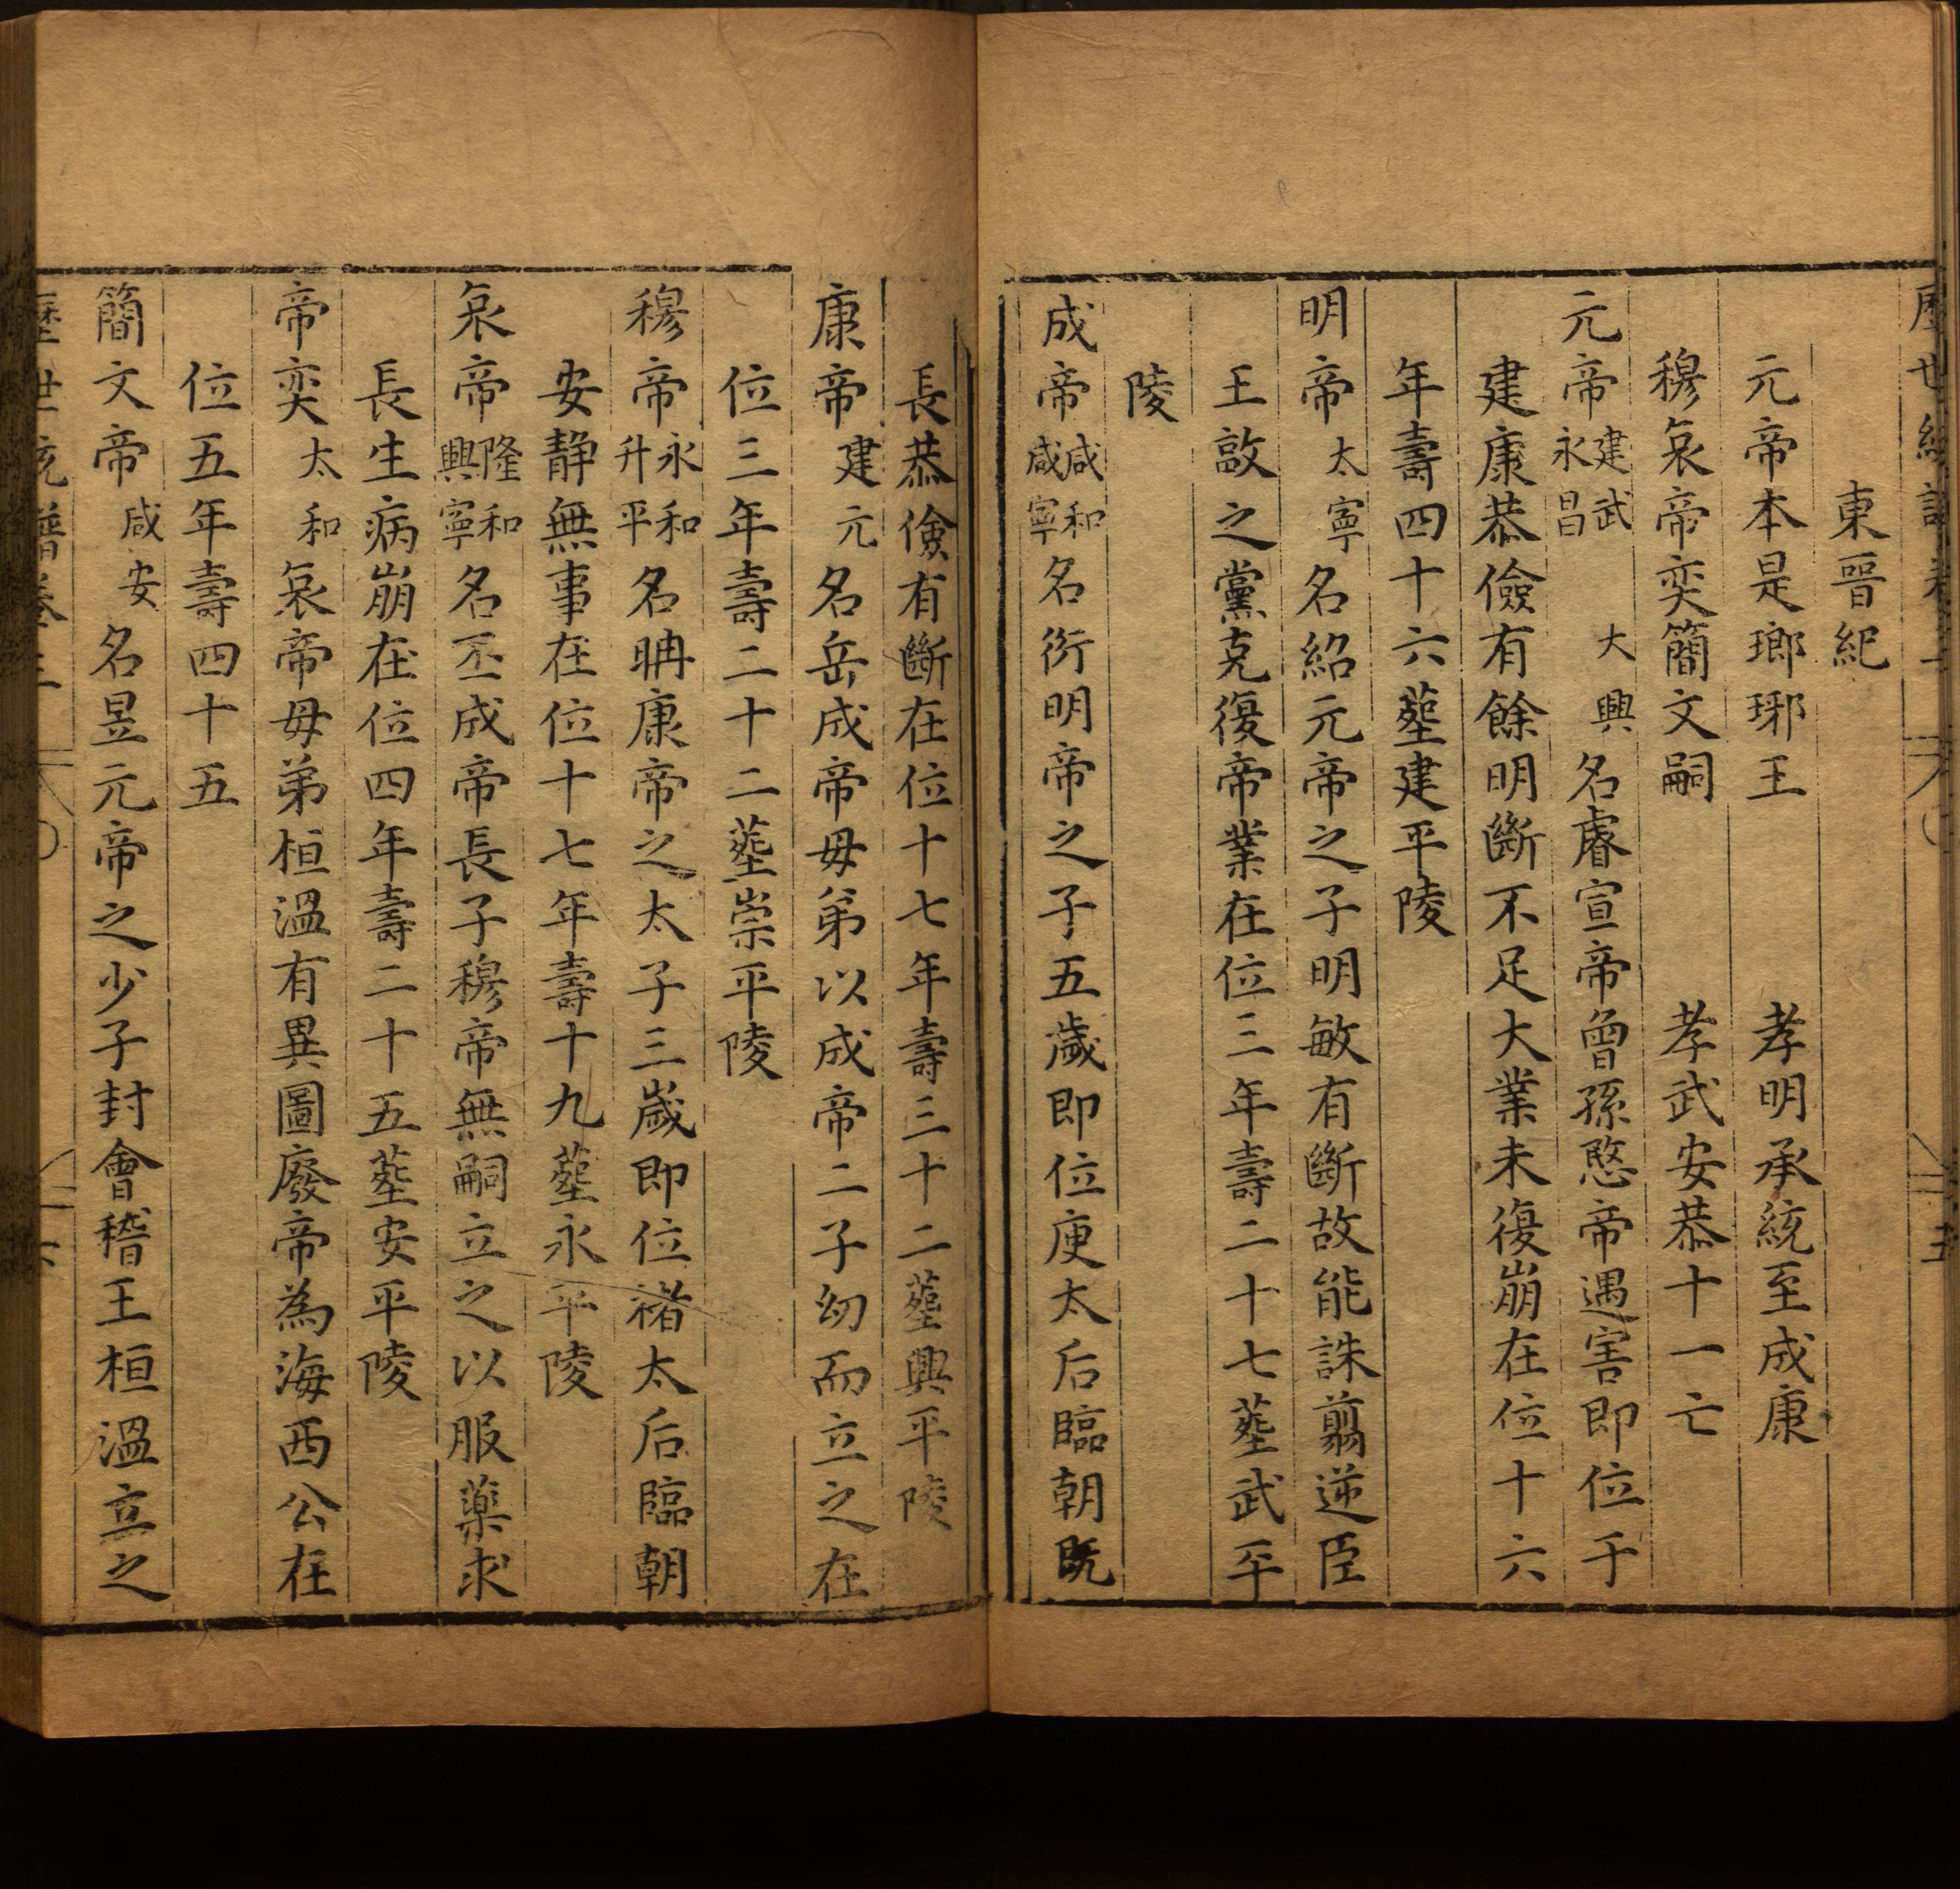 東晉紀
元帝本是瑯琊王 孝明承統至成康
穆哀帝奕簡文嗣 孝武安恭十一亡
元帝建武永昌大興名睿宣帝曾孫愍帝遇害即位于
建康恭儉有餘明斷不足大業未復崩在位十六
年壽四十六塟建平陵
明帝太寧名紹元帝之子明敏有斷故能誅翦逆臣
王敦之黨克復帝業在位三年壽二十七塟武平
陵
成帝咸和咸寧名衍明帝之子五歲即位庾太后臨朝既
長恭儉有斷在位十七年壽三十二塟興平陵
康帝建元名岳成帝母弟以成帝二子幼而立之在
位三年壽二十二塟崇平陵
穆帝永和升平名聃康帝之太子三歲即位褚太后臨朝
安靜無事在位十七年壽十九塟永平陵
哀帝隆和興寧名丕成帝長子穆帝無嗣立之以服藥求
長生病崩在位四年壽二十五塟安平陵
帝奕太和哀帝母弟桓溫有異圖廢帝為海西公在
位五年壽四十五
簡文帝咸安名昱元帝之少子封會稽王桓溫立之
歷世統譜卷